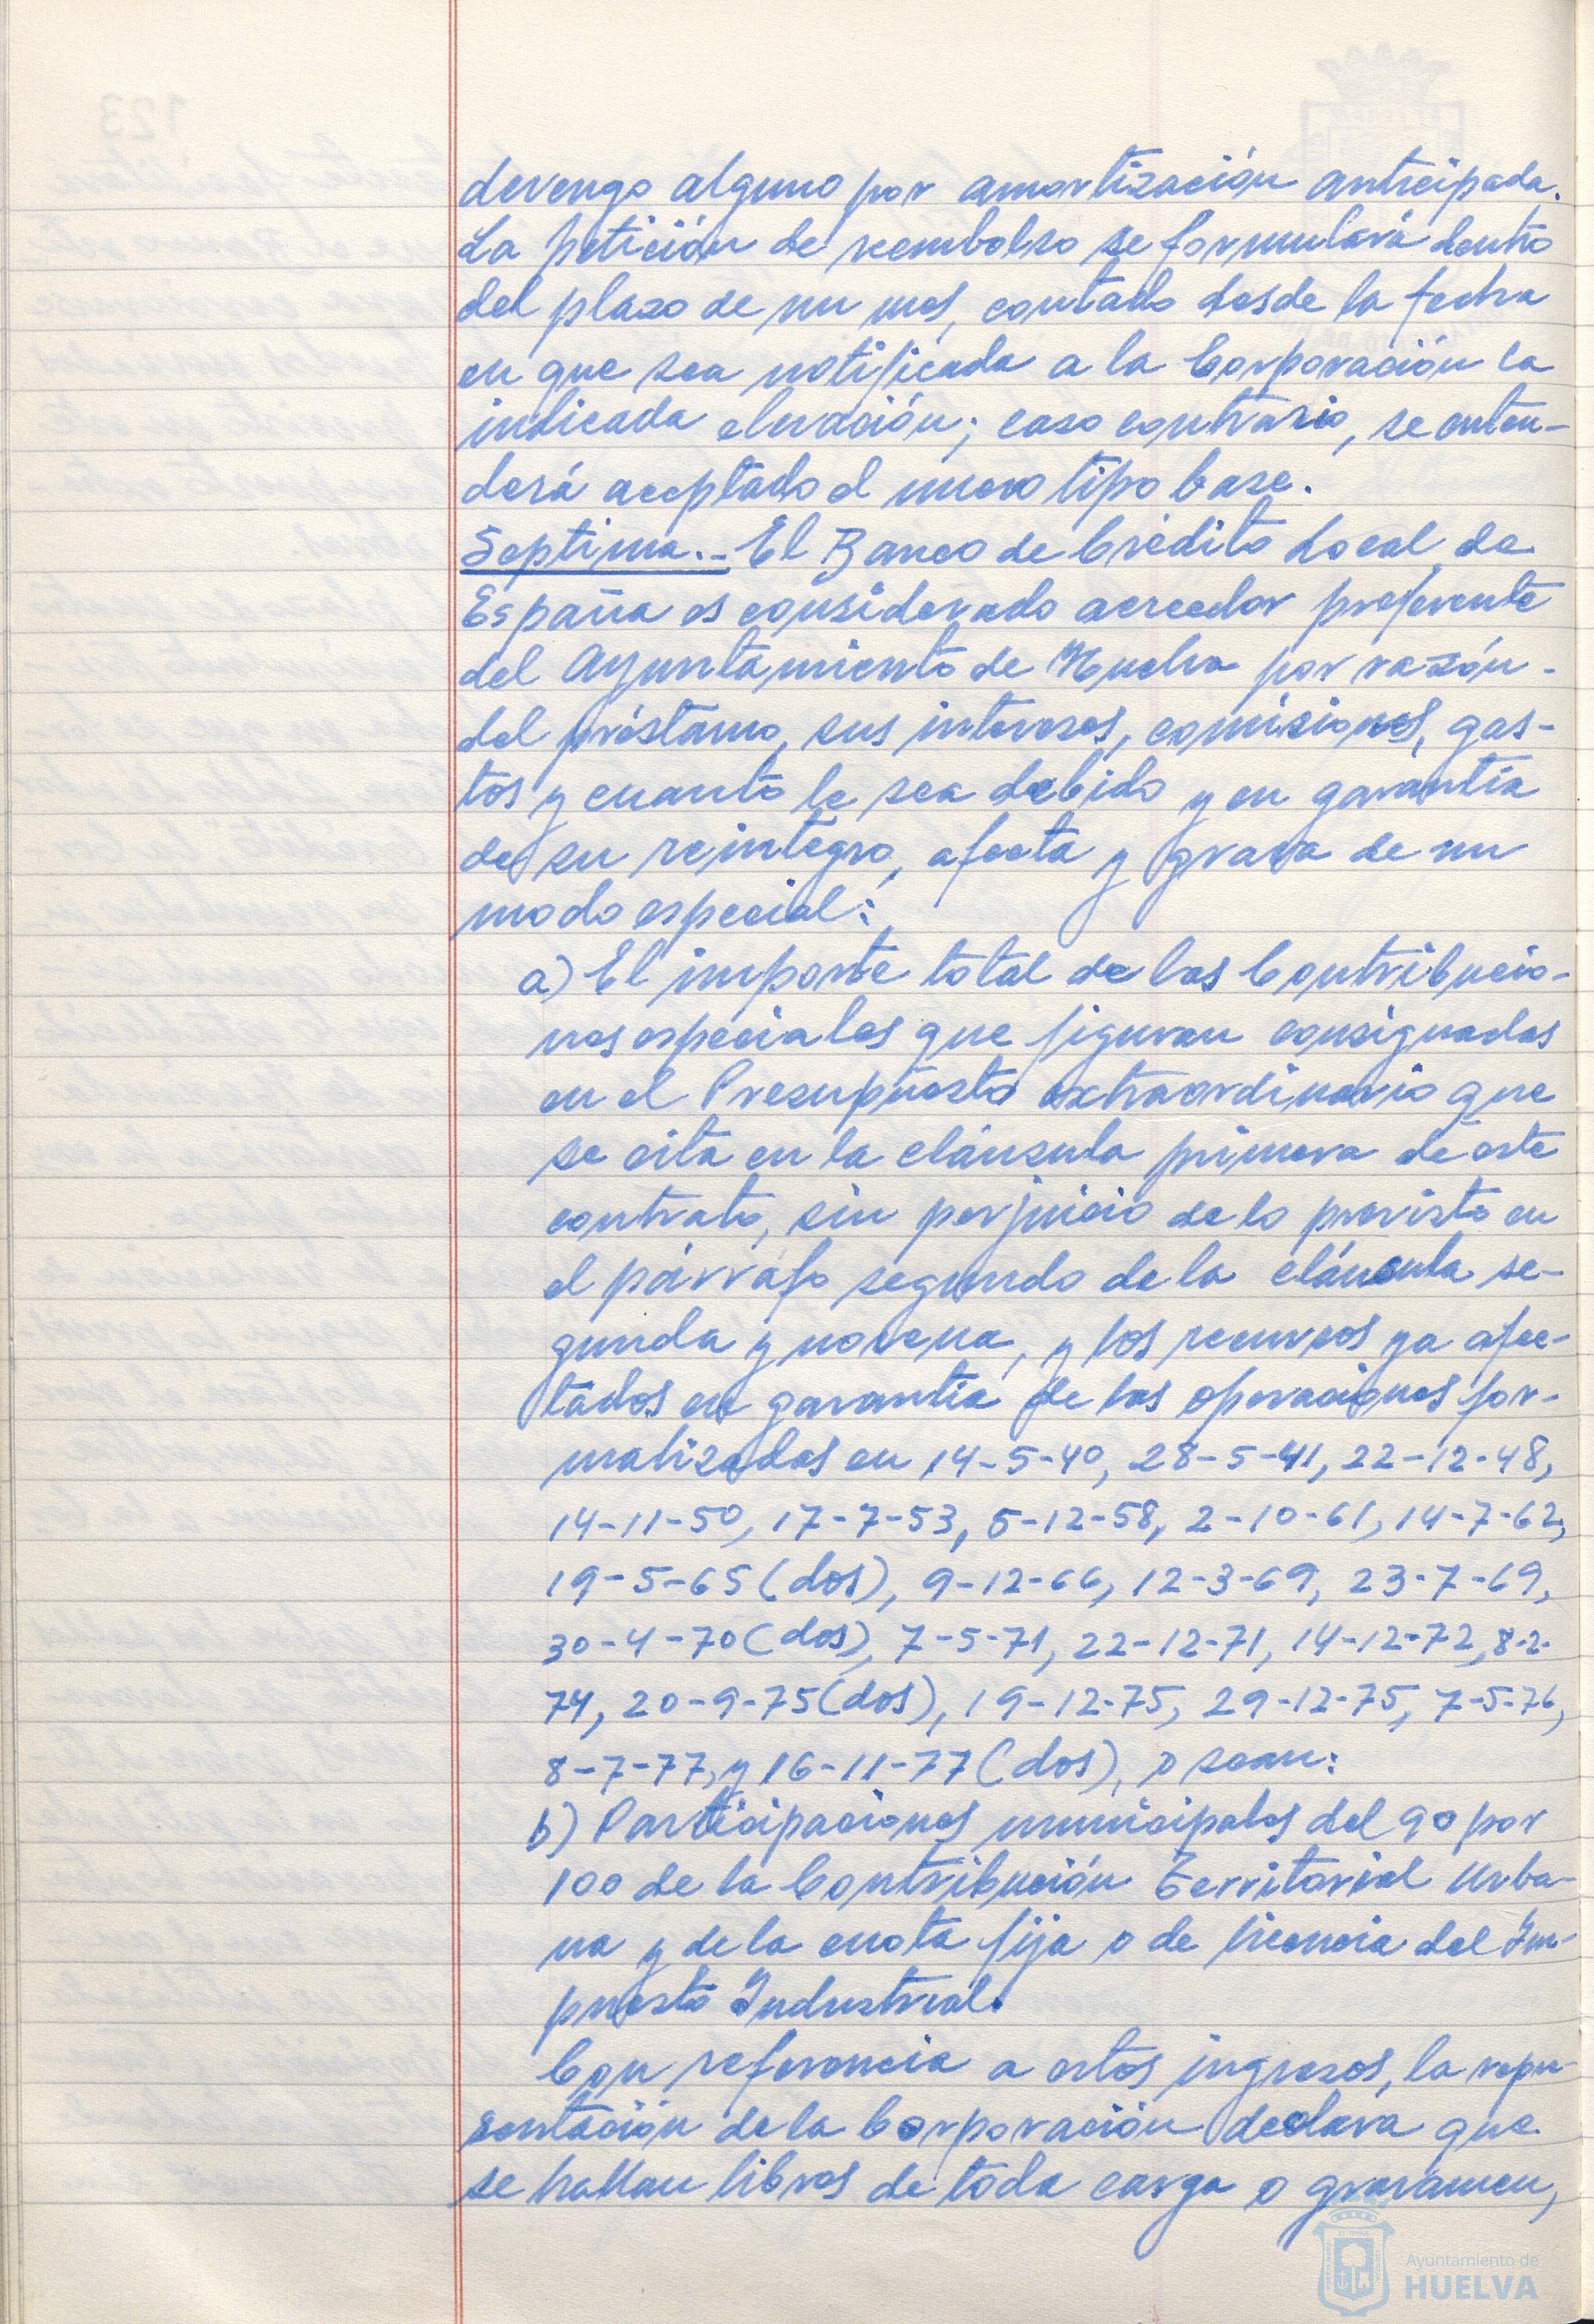 devengo alguno por amortización anticipada.
La petición de reembolso se formulará dentro
del plazo de un mes, contado desde la fecha
en que sea notificada a la Corporación la
indicada elevación; caso contrario, se enten-
derá aceptado el nuevo tipo base.
Septima.- El Banco de Crédito Local de
España es considerado acreedor preferente
del Ayuntamiento de Huelva por razón
del préstamo, sus intereses, comisiones, gas-
tos y cuanto le sea debido y en garantía
de su reintegro, afecta y grava de un
modo especial:
a) El importe total de las Contribucio-
nes especiales que figuran consignadas
en el Presupuesto extraordinario que
se cita en la cláusula primera de este
contrato, sin perjuicio de lo previsto en
el párrafo segundo de la cláusula se-
gunda y novena, y los recursos ya afec-
tados en garantía de las operaciones for-
malizadas en 14-5-40, 28-5-41, 22-12-48,
14-11-50, 17-7-53, 5-12-58, 2-10-61, 14-7-62,
19-5-65 (dos), 9-12-66, 12-3-69, 23-7-69,
30-4-70 (dos), 7-5-71, 22-12-71, 14-12-72, 8-2-
74, 20-9-75 (dos), 19-12-75, 29-12-75, 7-5-76,
8-7-77, y 16-11-77 (dos), o sean:
b) Participaciones municipales del 90 por
100 de la Contribución Territorial Urba-
na y de la cuota fija o de licencia del Im-
puesto Industrial.
Con referencia a estos ingresos, la repre-
sentación de la Corporación declara que
se hallan libres de toda carga o gravamen,
Ayuntamiento de
HUELVA